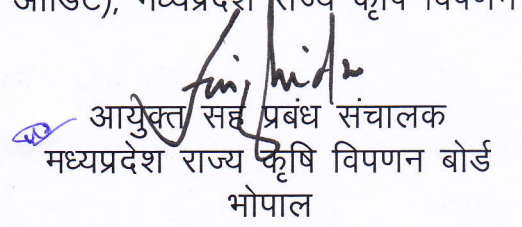 ऑडिट), मध्यप्रदेश राज्य कृषि विपणन
आयुक्त सह प्रबंध संचालक
मध्यप्रदेश राज्य कृषि विपणन बोर्ड
भोपाल